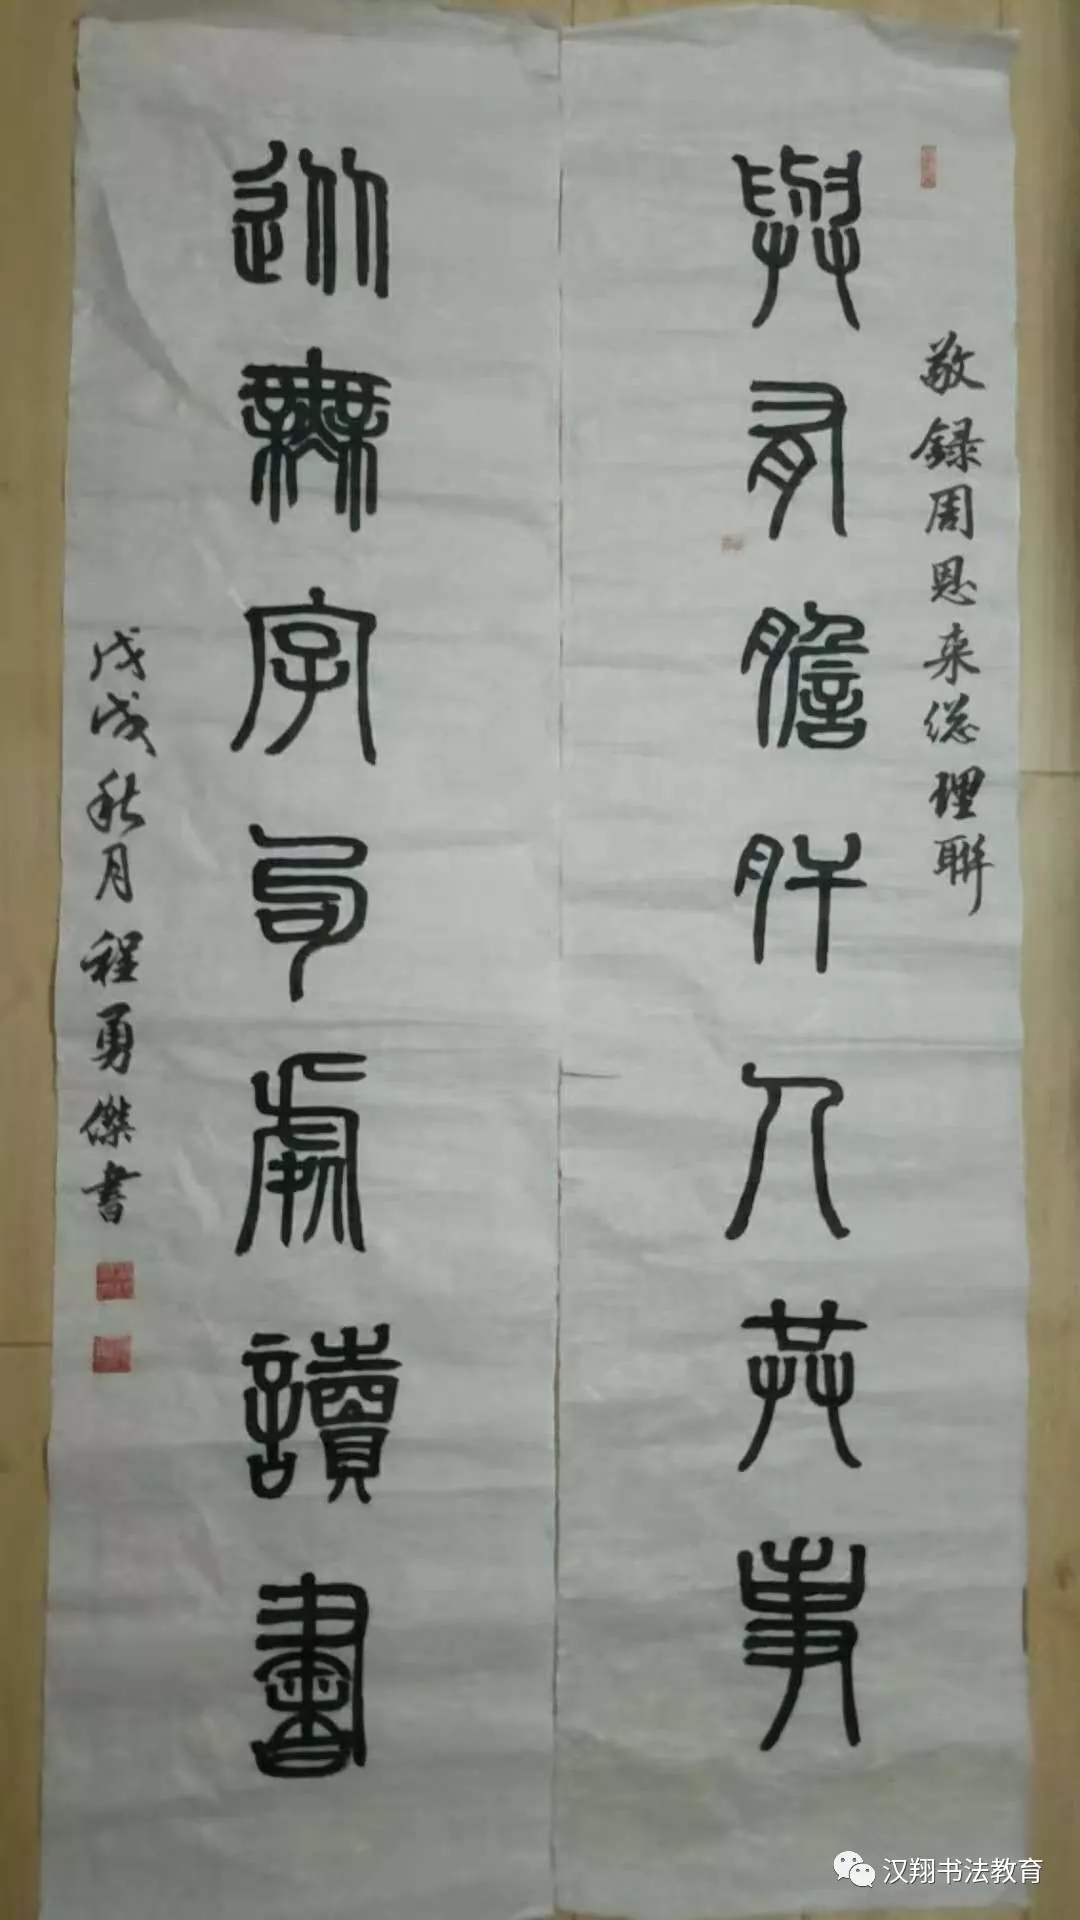 敬録周恩来総理聯
與有膽肝人共事
従無字句處讀書
戊戌秋月程勇傑書
汉翔书法教育